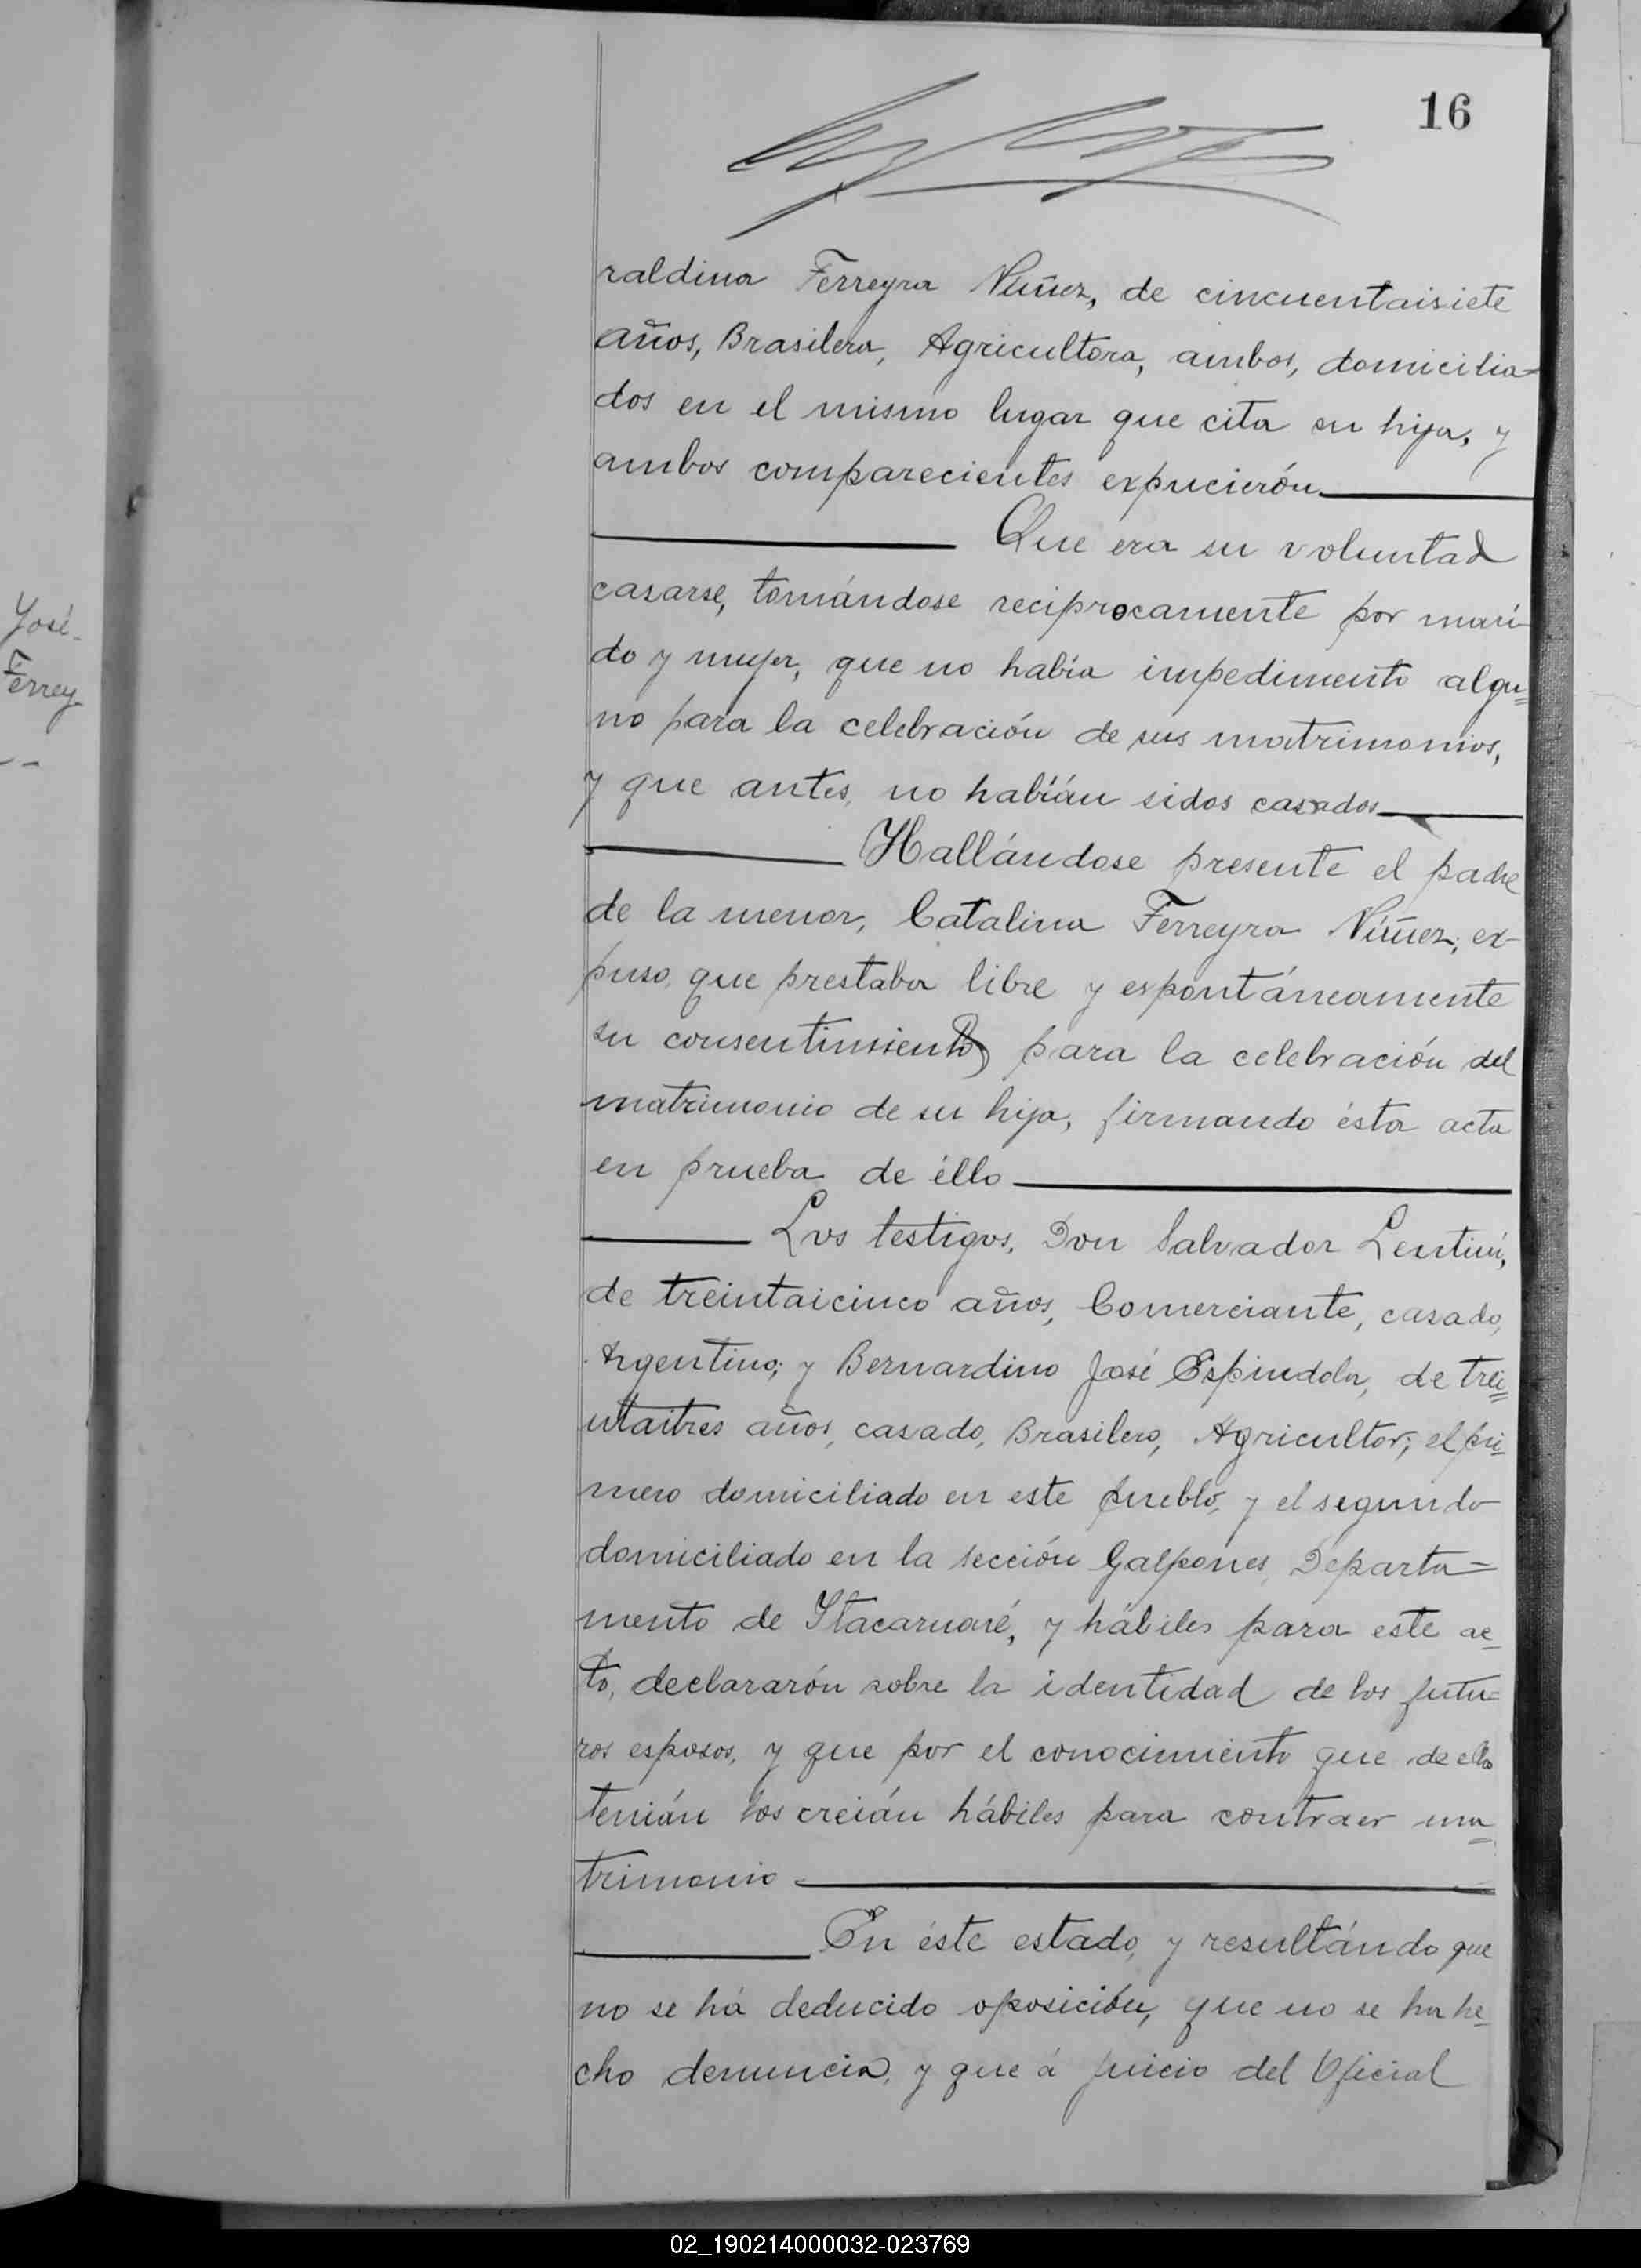 16
José
Ferrey
raldina Ferreyra Núñez, de cincuentaisiete
años, Brasilera, Agricultora, ambos, domicilia-
dos en el mismo lugar que cita su hija, y
ambos comparecientes expucierón
Que era su voluntad
casarse, tomándose reciprocamente por mari-
do y mujer, que no había impedimento algu=
no para la celebración de sus matrimonios,
y que antes, no habían sidos casados
Hallándose presente el padre
de la menor, Catalina Ferreyra Núñez, ex-
puso, que prestaba libre y espontáneamente
su consentimiento para la celebración del
matrimonio de su hija, firmando ésta acta
en prueba de éllo
Los testigos, Don Salvador Lentini,
de treintaicinco años, Comerciante, casado,
Argentino; y Bernardino José Espindola, de trei=
ntaitres años, casado, Brasilero, Agricultor; el pri=
mero domiciliado en este pueblo, y el segundo
domiciliado en la sección Galpones, Departa=
mento de Itacaruaré, y hábiles para este ac=
to, declararón sobre la identidad de los futu=
ros esposos, y que por el conocimiento que de ellos
tenián los creián hábiles para contraer ma=
trimonio
En éste estado, y resultándo que
no se há deducido oposición, que no se ha he=
cho denuncia, y que á juicio del Oficial
02_190214000032-023769